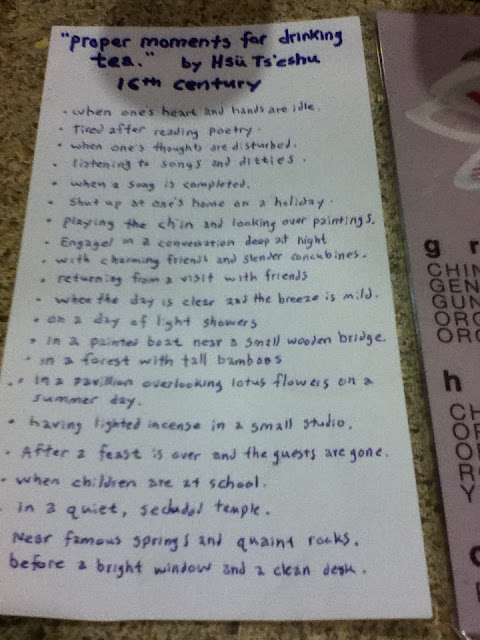 "proper moments for drinking
tea." by Hsü Ts'eshu
16th century
• when one's heart and hands are idle.
• Tired after reading poetry.
• when one's thoughts are disturbed.
• listening to songs and ditties.
• when a song is completed.
• shut up at one's home on a holiday.
• playing the ch'in and looking over paintings.
• Engaged in a conversation deep at night
• with charming friends and slender concubines.
• returning from a visit with friends
• when the day is clear and the breeze is mild.
• on a day of light showers
• in a painted boat near a small wooden bridge.
• in a forest with tall bamboos
• in a pavillion overlooking lotus flowers on a
summer day.
• having lighted incense in a small studio.
• After a feast is over and the guests are gone.
• when children are at school.
• in a quiet, secluded temple.
Near famous springs and quaint rocks.
before a bright window and a clean desk.
g r
CHIN
GEN
GUN
ORG
ORG
h
CH
Y